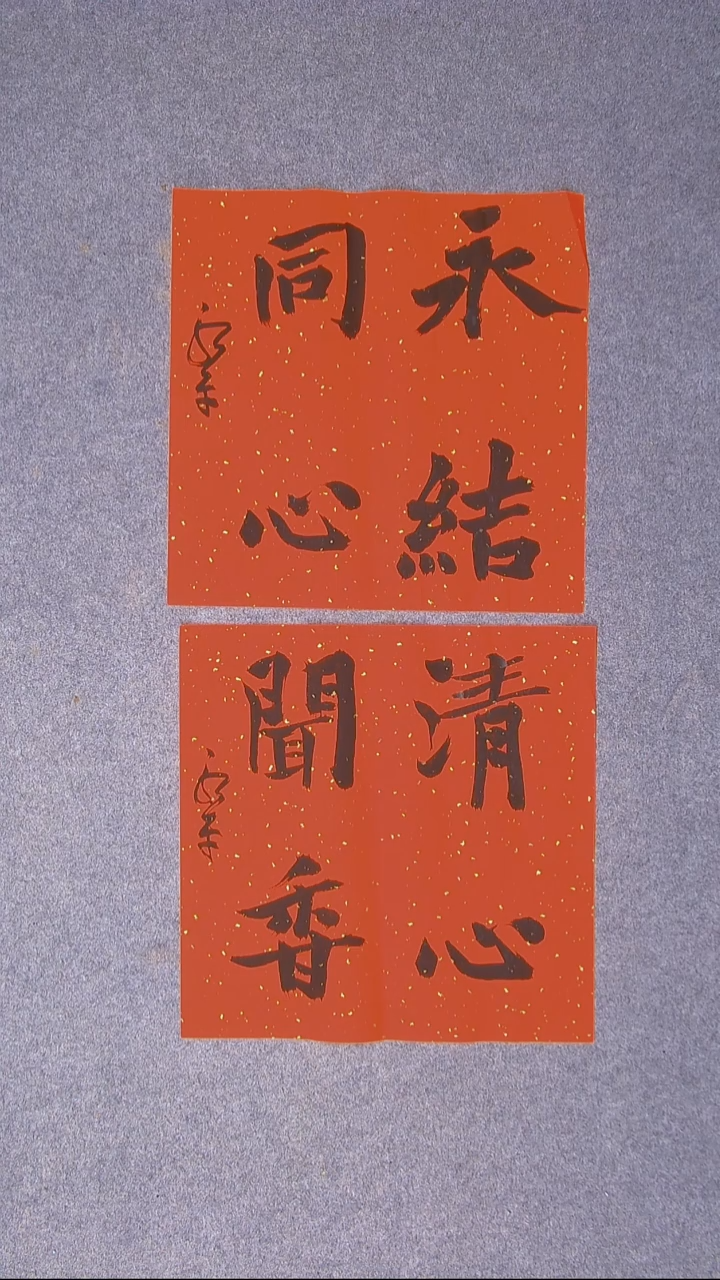 永結
同心
清心
聞香